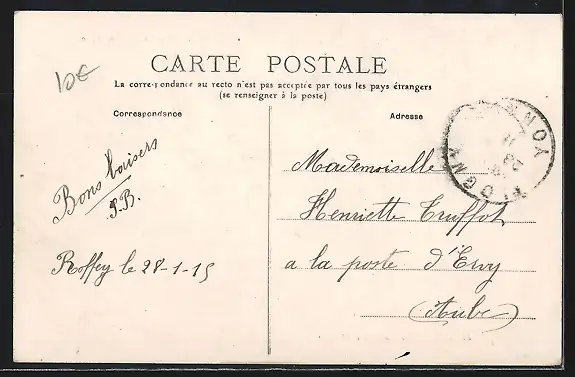 10€
CARTE POSTALE
La correspondance au recto n'est pas acceptée par tous les pays étrangers
(se renseigner à la poste)
Correspondance
Adresse
Bons baisers
Roffey le 28-1-15
Mademoiselle
Henriette Truffot
a la poste d'Ervy
(Aube)
YONNE